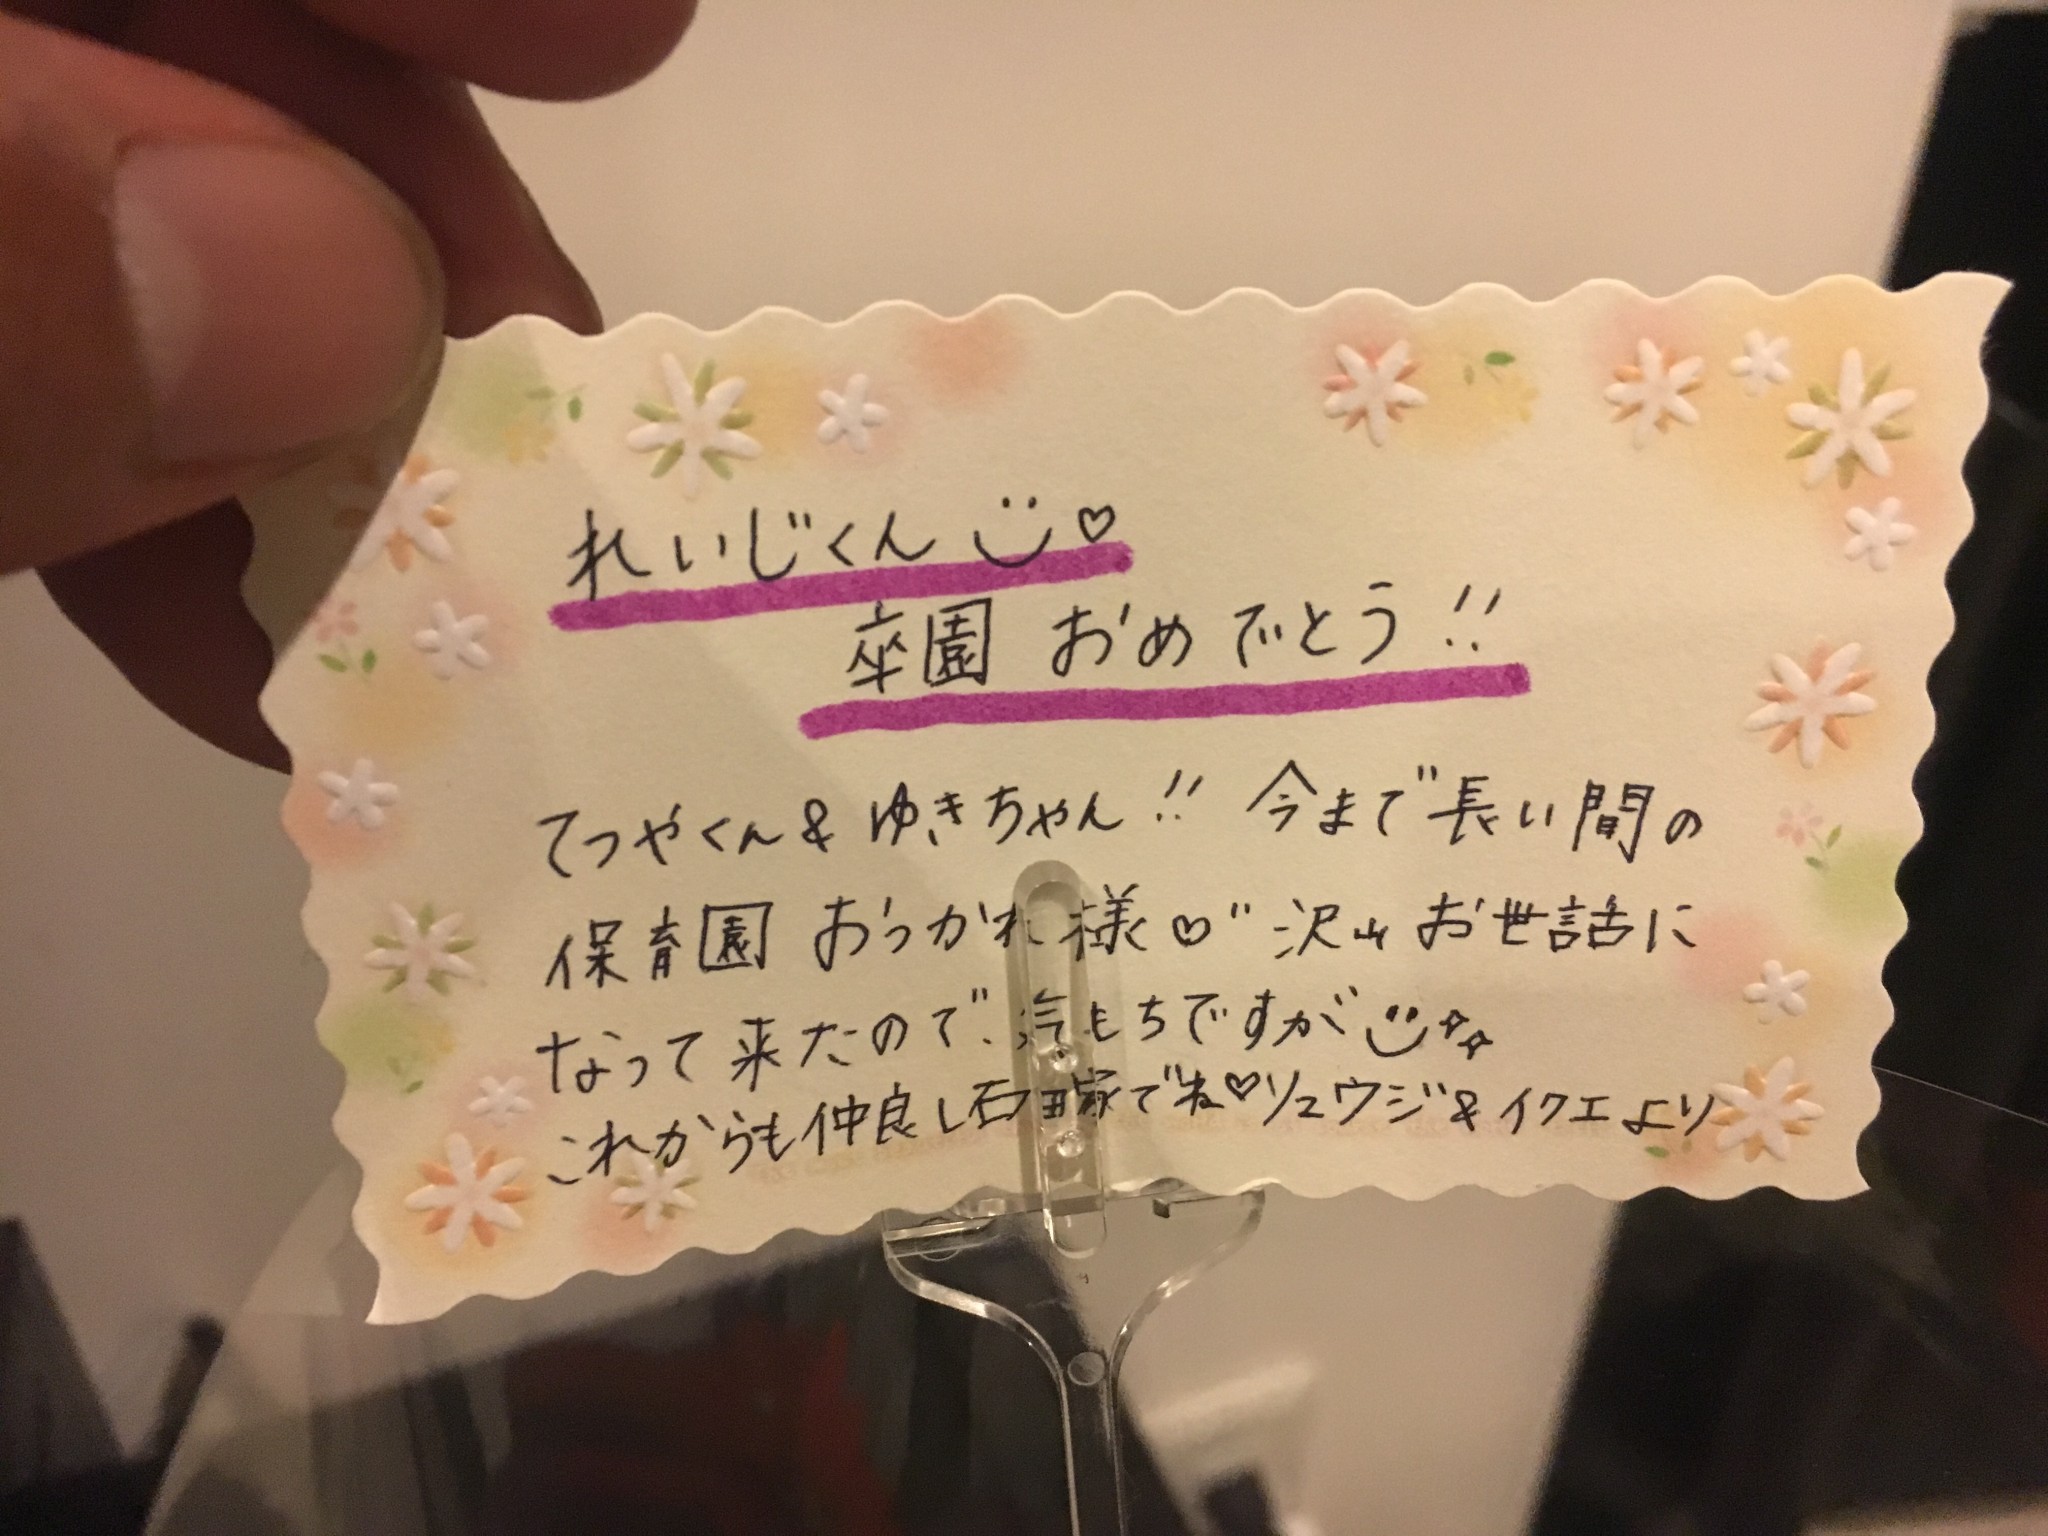 れいじくん
卒園 おめでとう!!
てつやくん&ゆきちゃん!! 今まで長い間の
保育園 おつかれ様♡” 沢山お世話に
なって来たので、気もちですが
これからも仲良し石田家でね♡リュウジ&イクエより